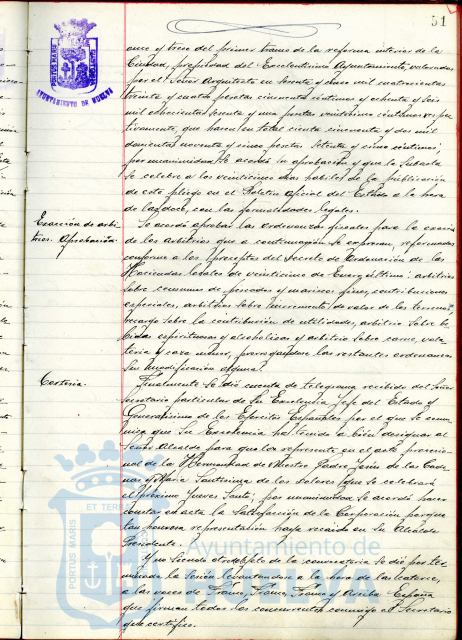 51
PORTUS MARIS
AYUNTAMIENTO DE HUELVA
once y trece del primer tramo de la reforma interior de la
Ciudad, propiedad del Excelentísimo Ayuntamiento, valorados
por el Señor Arquitecto en sesenta y cinco mil cuatrocientas
treinta y cuatro pesetas cincuenta céntimos y ochenta y seis
mil ochocientas sesenta y una pesetas veinticinco céntimos respec
tivamente, que hacen en total ciento cincuenta y dos mil
doscientas noventa y cinco pesetas setenta y cinco céntimos,
por unanimidad se acordó su aprobación y que la subasta
se celebre a los veinticinco días hábiles de la publicación
de este pliego en el Boletín oficial del Estado a la hora
de las doce, con las formalidades legales.
Exacción de arbi
trios. Aprobación.
Se acordó aprobar las ordenanzas fiscales para la exacción
de los arbitrios que a continuación se expresan, reformadas
conforme a los preceptos del Decreto de Ordenación de las
Haciendas locales de veinticinco de Enero último: arbitrios
sobre consumo de pescados y mariscos finos, contribuciones
especiales, arbitrios sobre incremento de valor de los terrenos,
recargo sobre la contribución de utilidades, arbitrio sobre be
bidas espirituosas y alcohólicas y arbitrio sobre carnes, vola
tería y caza menor, prorrogándose las restantes ordenanzas
sin modificación alguna.
Cortesía.
Finalmente se dió cuenta de telegrama recibido del Señor
Secretario particular de Su Excelencia Jefe del Estado y
Generalísimo de los Ejércitos Españoles por el que se comu
nica que Su Excelencia ha tenido a bien designar al
Señor Alcalde para que lo represente en el acto procesio
nal de la Hermandad de Nuestro Padre Jesús de las Cade
nas y María Santísima de los Dolores que se celebrará
el próximo Jueves Santo, por unanimidad se acordó hacer
constar en acta la satisfacción de la Corporación porque
tan honrosa representación haya recaído en su Alcalde
Presidente.
Y no siendo otro el objeto de la convocatoria se dió por ter
minada la sesión levantándose a la hora de las catorce,
a las voces de Franco, Franco, Franco y Arriba España
que firman todos los concurrentes conmigo el Secretario
que certifico.
ET TERRÆ
PORTUS MARIS
Ayuntamiento de